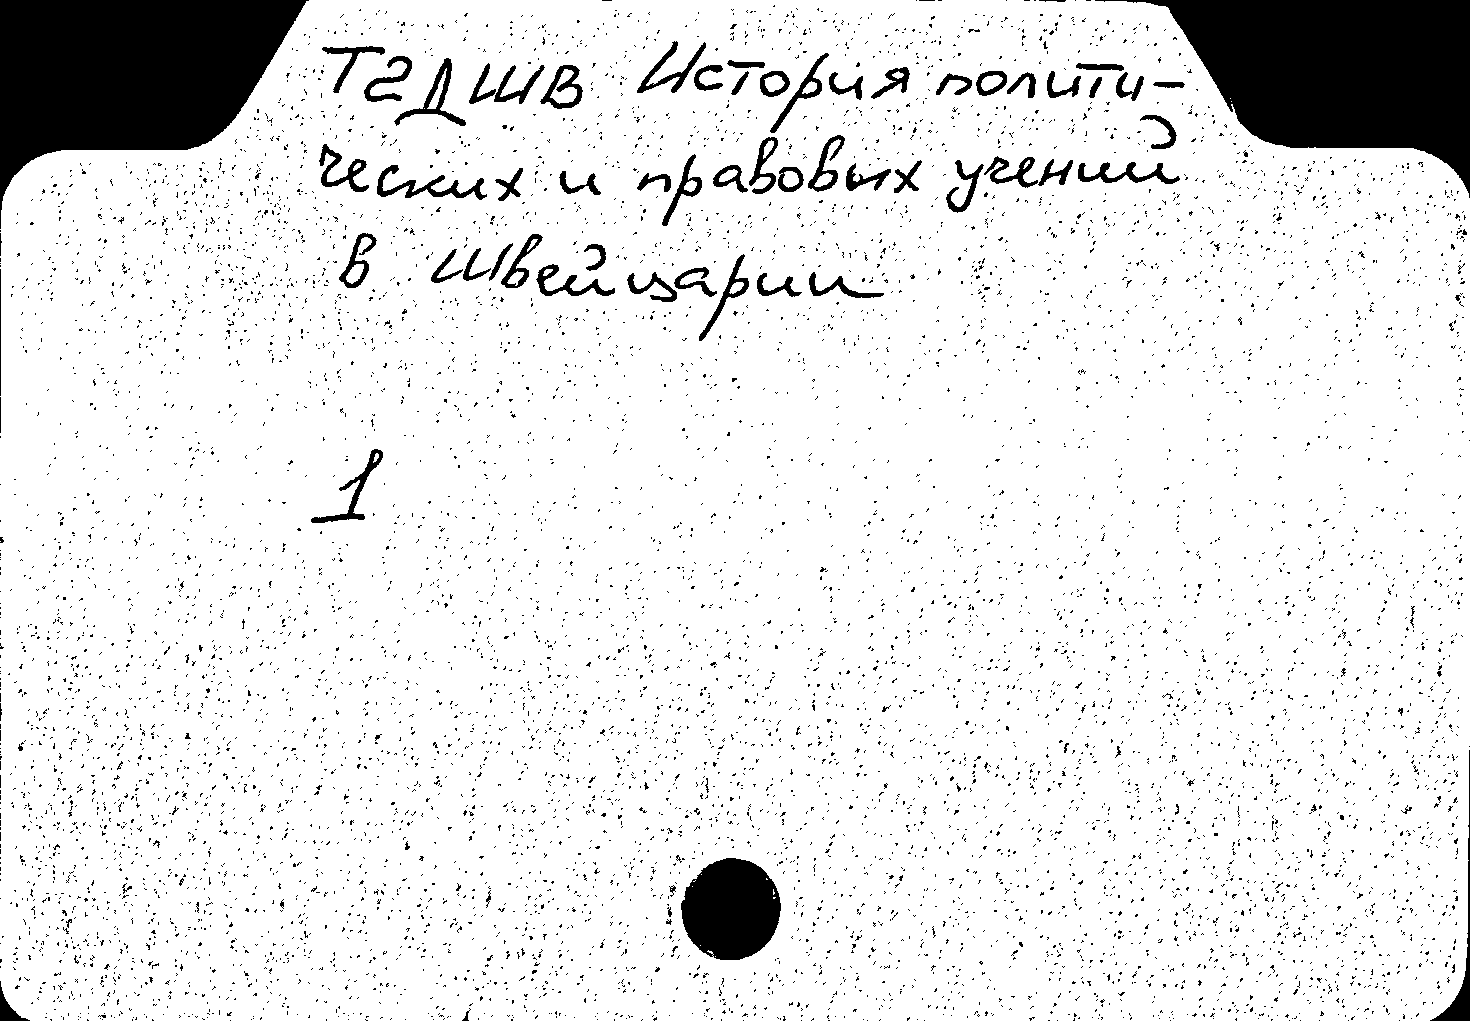 Т2ДШВ История полити-
ческих и правовых учений
в Швейцарии
1